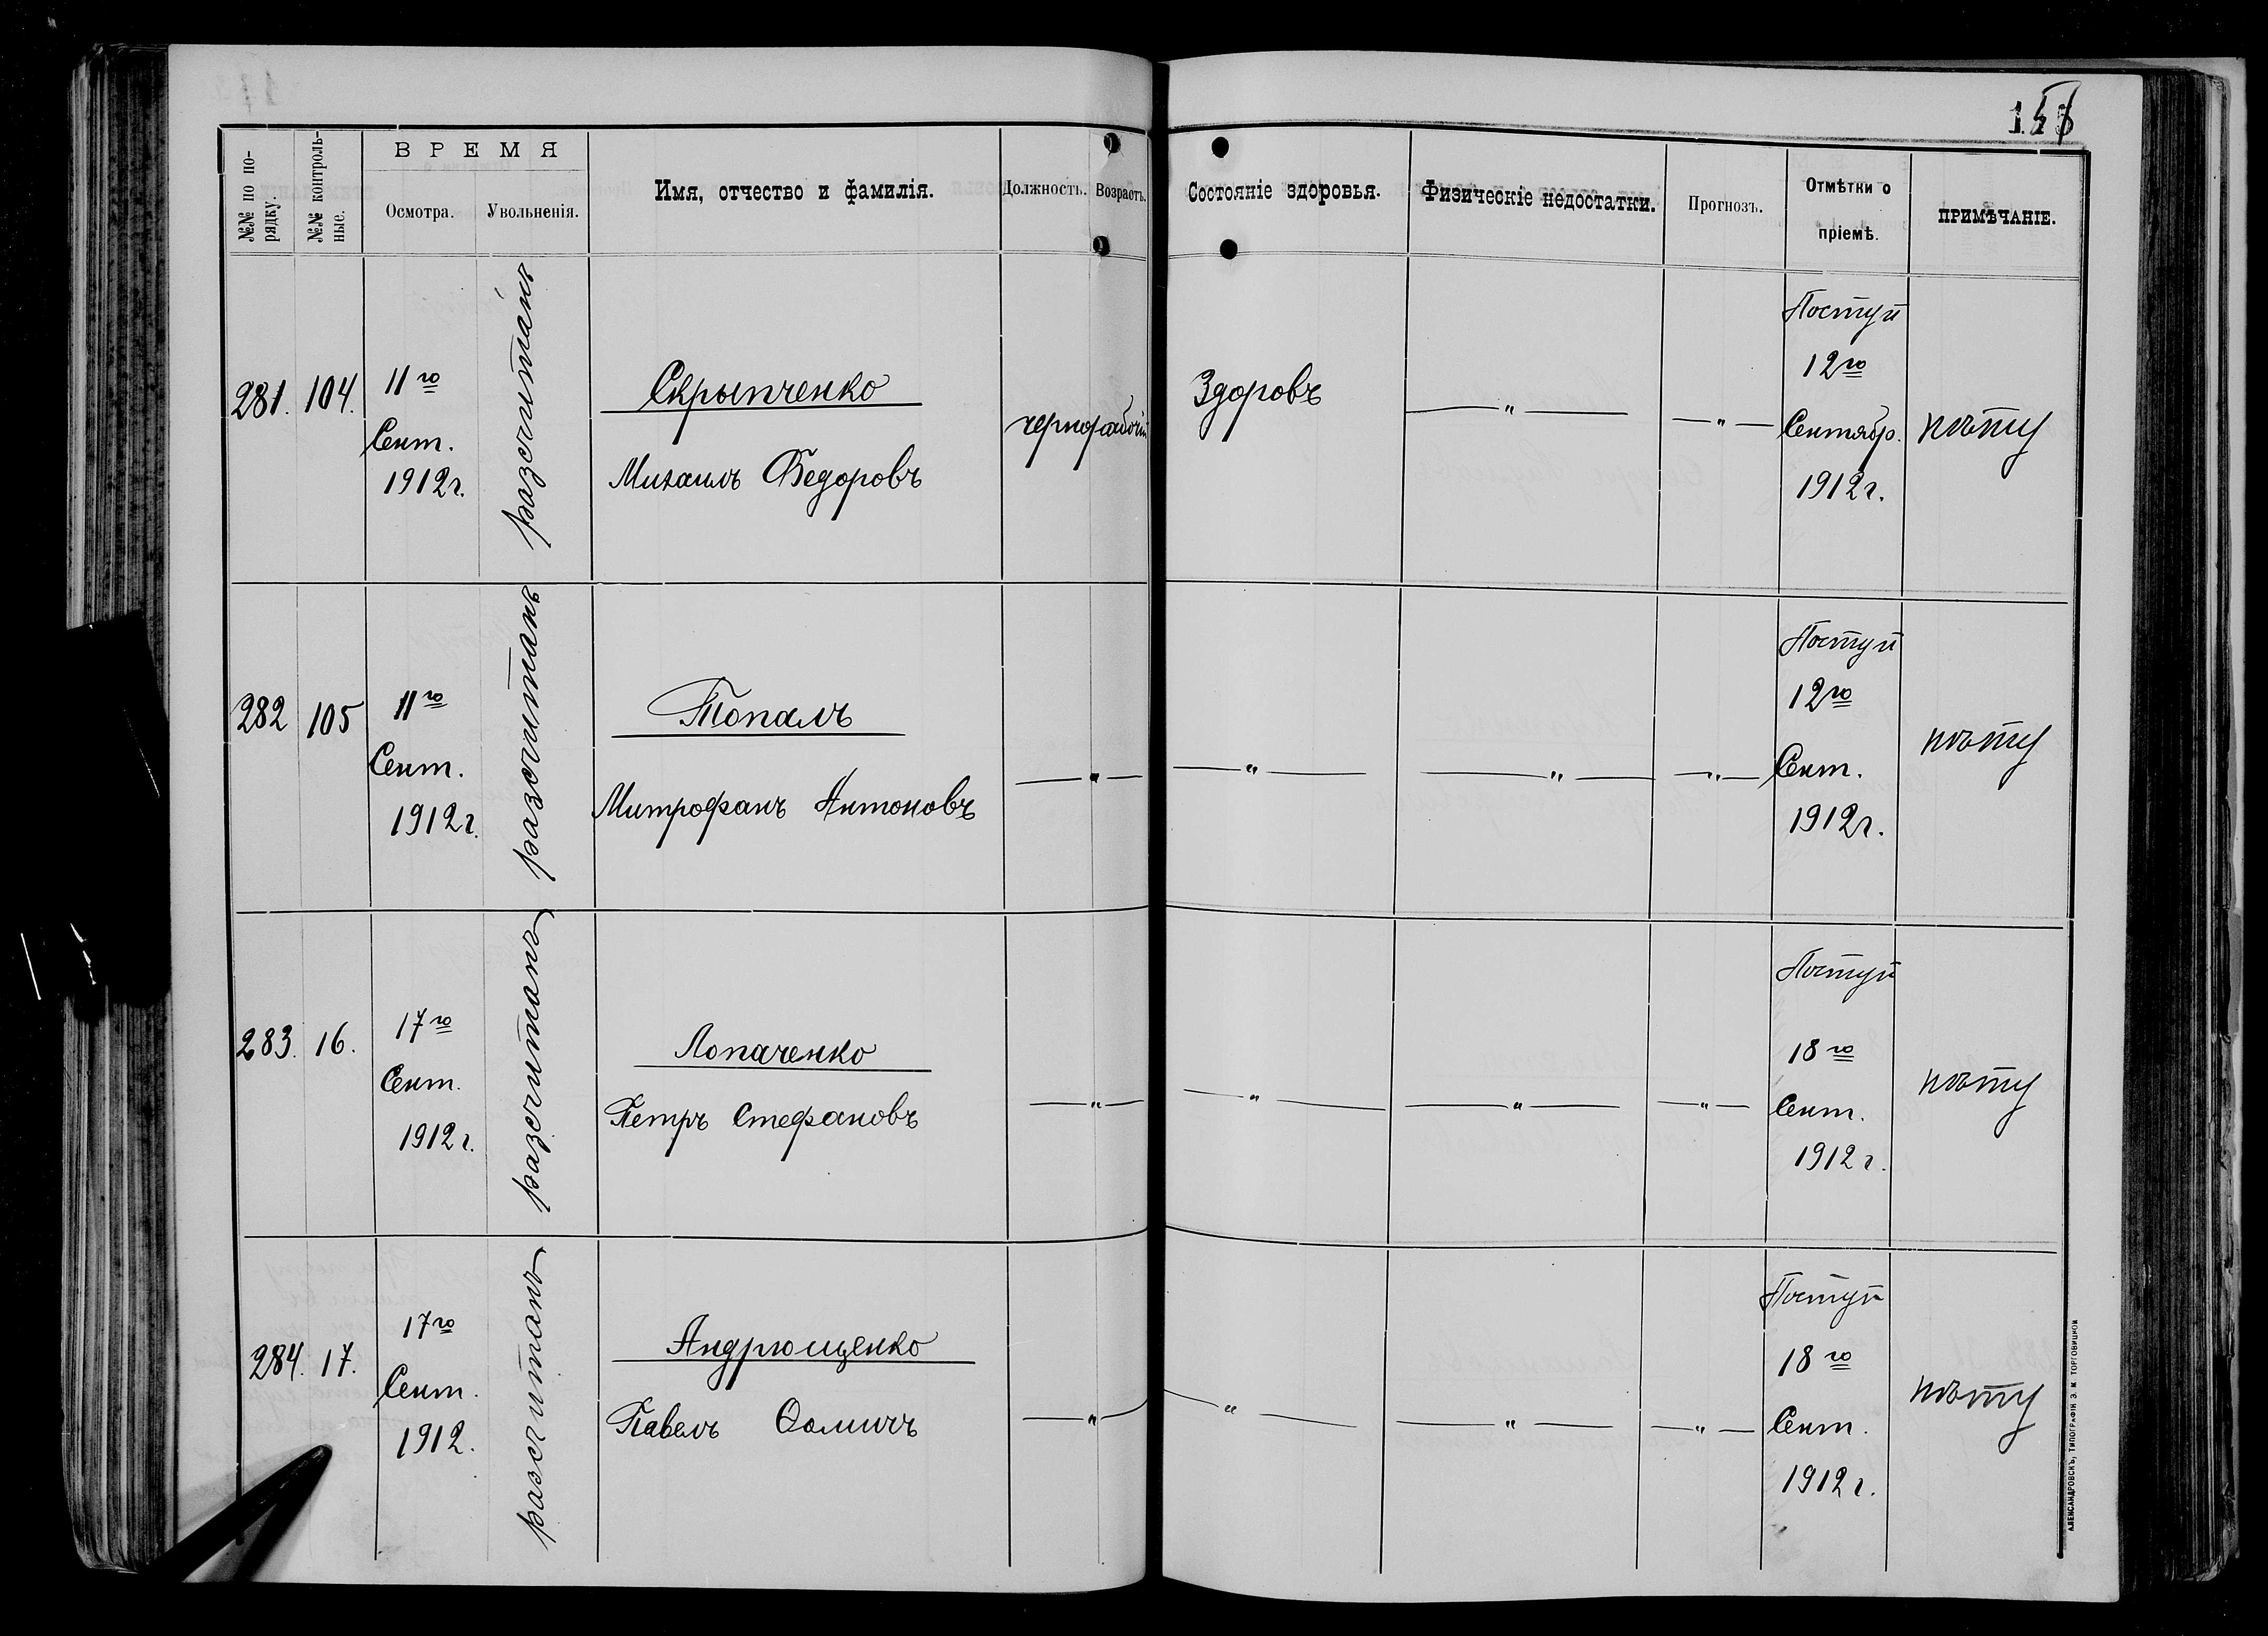 В Р Е М Я
№№ по по-
рядку.
№№ контроль-
ные.
Осмотра.
Увольненія.
Имя, отчество и фамилія.
Должность.
Возрастъ.
Состояніе здоровья.
Физическіе недостатки.
Прогнозъ.
Отмѣтки о
пріемѣ.
ПРИМѢЧАНІЕ.
281. 104.
11го
Сент.
1912г.
разсчитанъ
Скрыпченко
Михаилъ Федоровъ
чернорабочій
Здоровъ
— " —
— " —
Поступ
12го
Сентябр.
1912г.
282 105
11го
Сент.
1912г.
разсчитанъ
Топалъ
Митрофанъ Антоновъ
— " —
— " —
— " —
— " —
Поступ
12го
Сент.
1912г.
283. 16.
17го
Сент.
1912г.
разсчитанъ
Лопаченко
Петръ Стефановъ
— " —
— " —
— " —
— " —
Поступ
18го
Сент.
1912г.
284. 17.
17го
Сент.
1912.
разсчитанъ
Андрющенко
Павелъ Ѳомичъ
— " —
— " —
— " —
— " —
Поступ
18го
Сент.
1912г.
АЛЕКСАНДРОВСКЪ, ТИПОГРАФІЯ Э. М. ТОРГОВИЦКОЙ